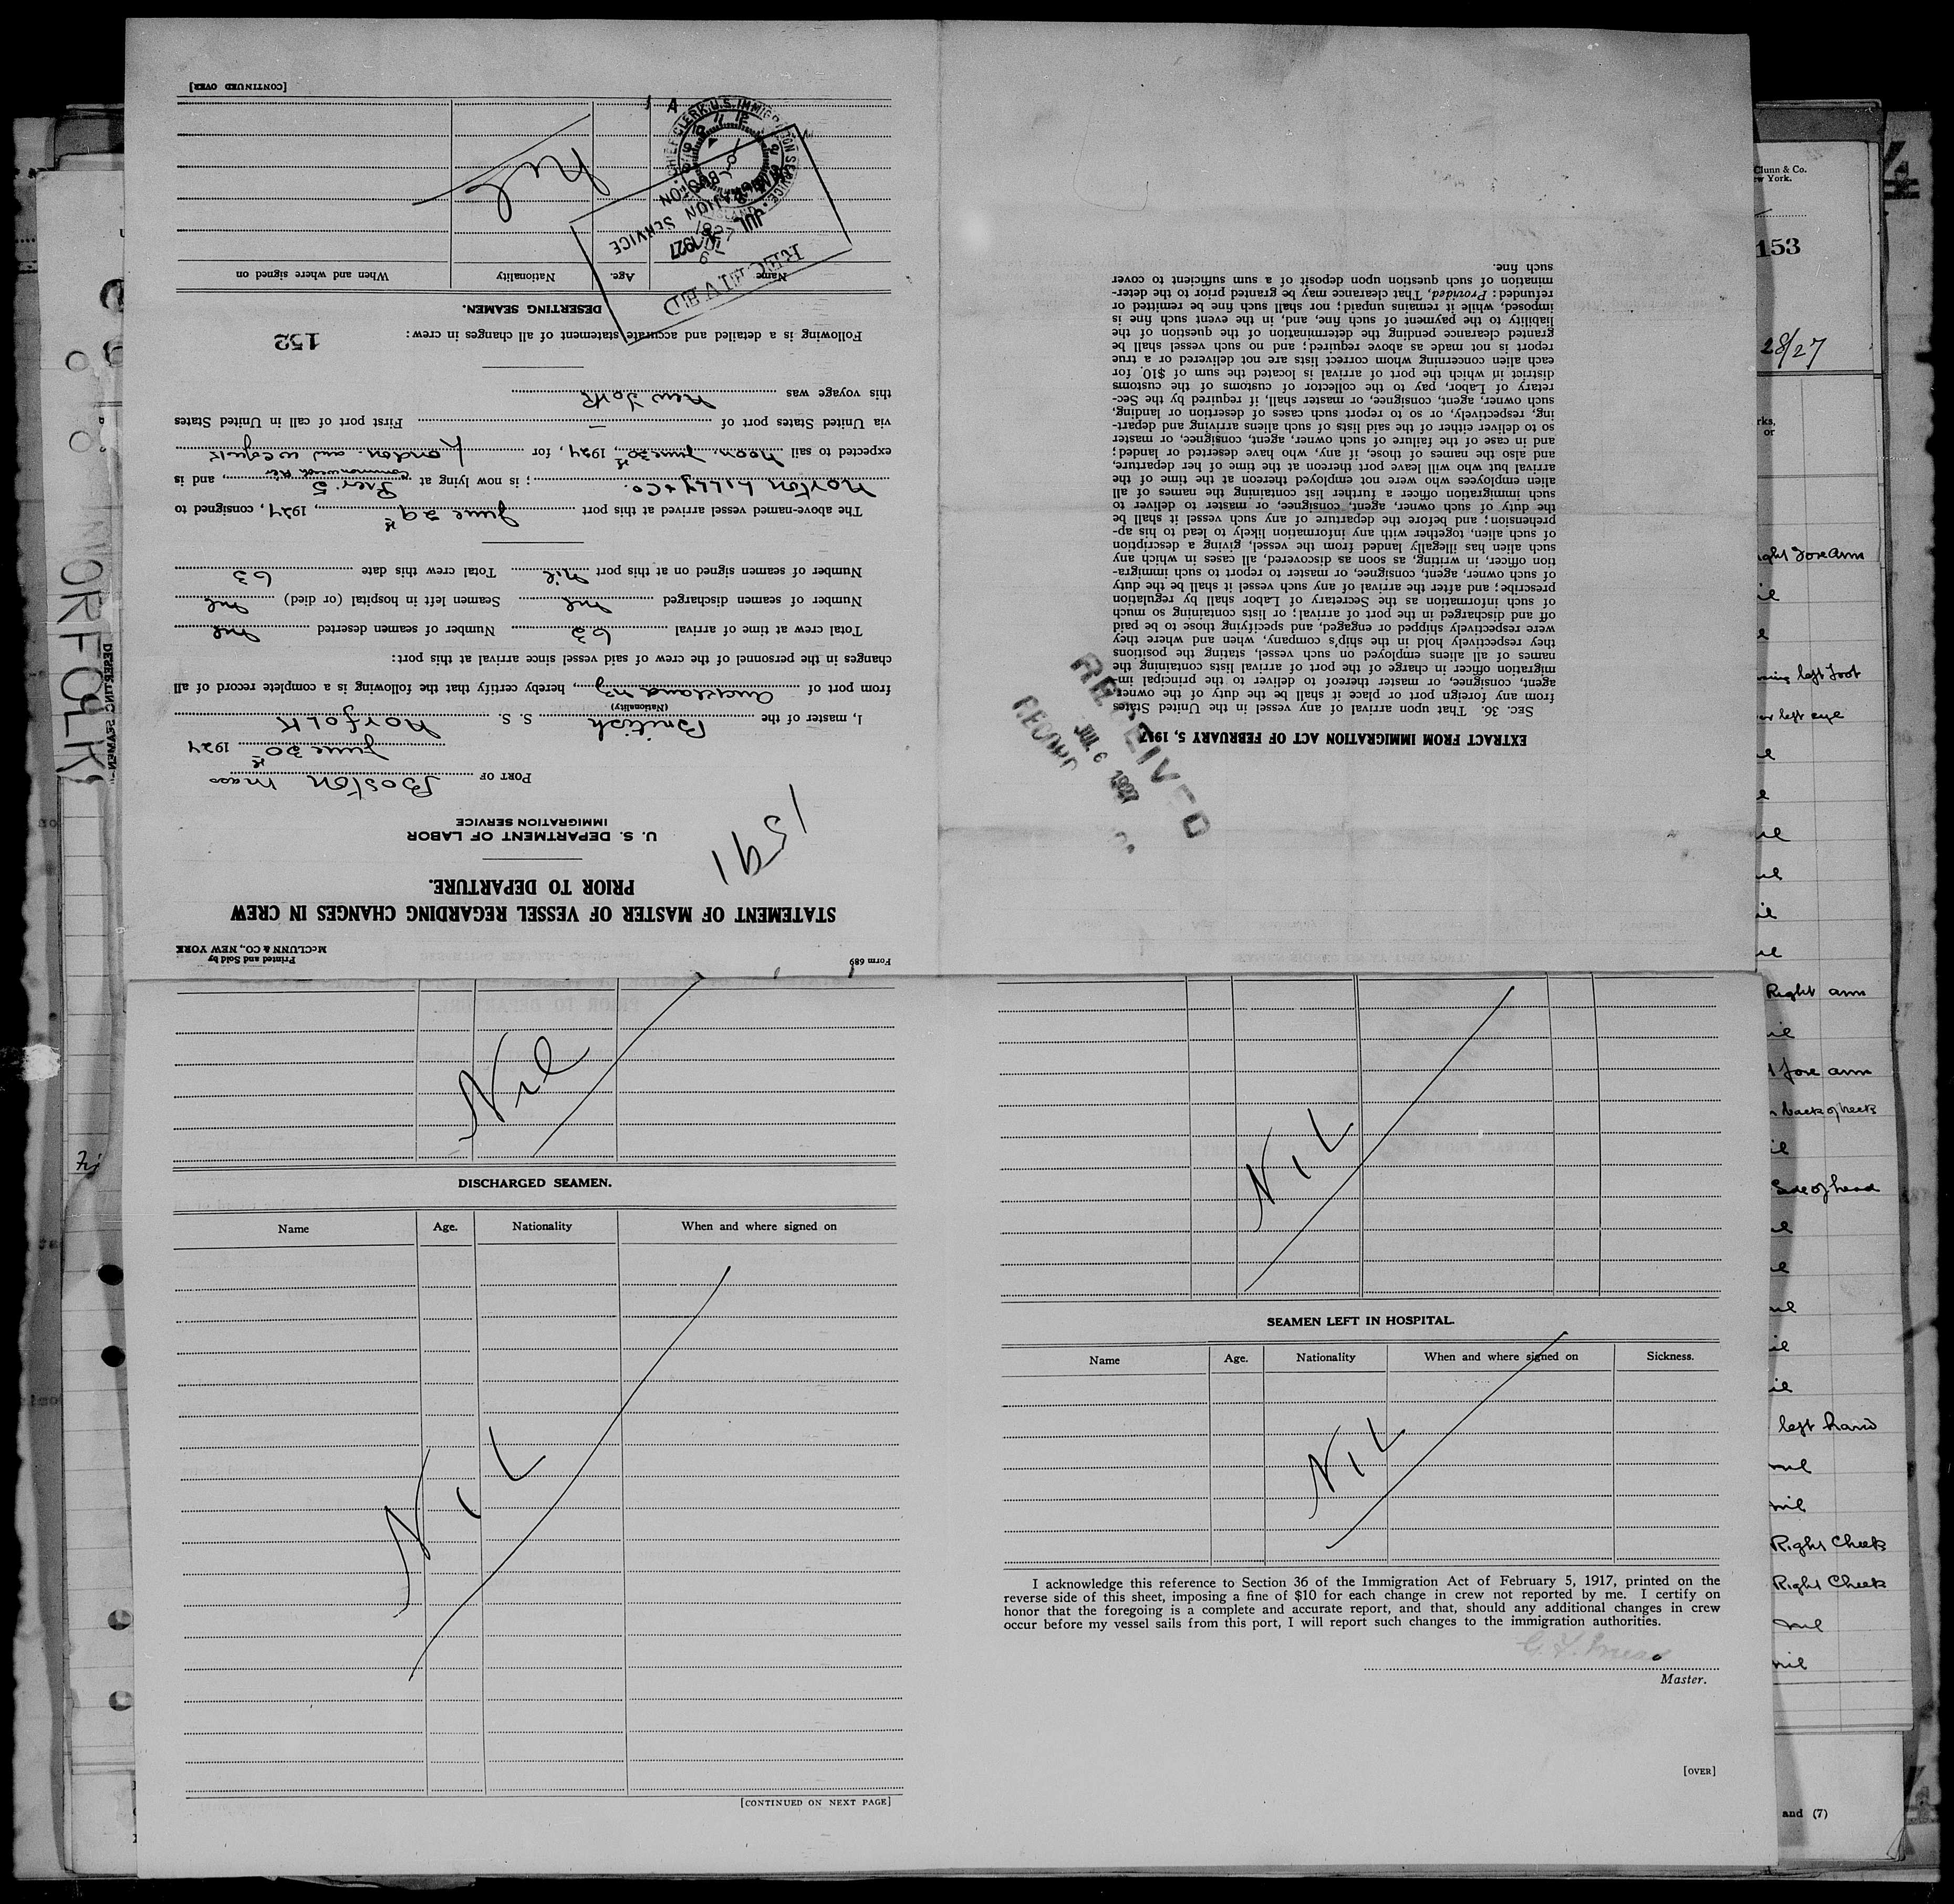 Form 689
Printed and Sold by
McCLUNN & CO., NEW YORK
STATEMENT OF MASTER OF VESSEL REGARDING CHANGES IN CREW
PRIOR TO DEPARTURE.
1591
U. S. DEPARTMENT OF LABOR
IMMIGRATION SERVICE
PORT OF Boston Mass
June 30th 1927
I, master of the British S. S. Norfolk
(Nationality)
from port of Auckland NZ, hereby certify that the following is a complete record of all
changes in the personnel of the crew of said vessel since arrival at this port:
Total crew at time of arrival 63 Number of seamen deserted Nil
Number of seamen discharged Nil Seamen left in hospital (or died) Nil
Number of seamen signed on at this port Nil Total crew this date 63
The above-named vessel arrived at this port June 29th, 1927, consigned to
Norton Lilly & Co.; is now lying at Pier 5 Commonwealth Pier, and is
expected to sail Noon. June 30th, 1927, for London and
via United States port of — First port of call in United States
this voyage was New York
Following is a detailed and accurate statement of all changes in crew:
152
DESERTING SEAMEN.
Name Age. Nationality When and where signed on
Nil
RECEIVED
JUL 1927
IMMIGRATION SERVICE
BOSTON
CHIEF CLERK, U.S. IMMIGRATION SERVICE
[CONTINUED OVER]
EXTRACT FROM IMMIGRATION ACT OF FEBRUARY 5, 1917
SEC. 36. That upon arrival of any vessel in the United States
from any foreign port or place it shall be the duty of the owner,
agent, consignee, or master thereof to deliver to the principal im-
migration officer in charge of the port of arrival lists containing the
names of all aliens employed on such vessel, stating the positions
they respectively hold in the ship's company, when and where they
were respectively shipped or engaged, and specifying those to be paid
off and discharged in the port of arrival; or lists containing so much
of such information as the Secretary of Labor shall by regulation
prescribe; and after the arrival of any such vessel it shall be the duty
of such owner, agent, consignee, or master to report to such immigra-
tion officer, in writing, as soon as discovered, all cases in which any
such alien has illegally landed from the vessel, giving a description
of such alien, together with any information likely to lead to his ap-
prehension; and before the departure of any such vessel it shall be
the duty of such owner, agent, consignee, or master to deliver to
such immigration officer a further list containing the names of all
alien employees who were not employed thereon at the time of the
arrival but who will leave port thereon at the time of her departure,
and also the names of those, if any, who have deserted or landed;
and in case of the failure of such owner, agent, consignee, or master
so to deliver either of the said lists of such aliens arriving and depart-
ing, respectively, or so to report such cases of desertion or landing,
such owner, agent, consignee, or master shall, if required by the Sec-
retary of Labor, pay to the collector of customs of the customs
district in which the port of arrival is located the sum of $10. for
each alien concerning whom correct lists are not delivered or a true
report is not made as above required; and no such vessel shall be
granted clearance pending the determination of the question of the
liability to the payment of such fine, and, in the event such fine is
imposed, while it remains unpaid; nor shall such fine be remitted or
refunded: Provided, That clearance may be granted prior to the deter-
mination of such question upon deposit of a sum sufficient to cover
such fine.
RECEIVED
JUL 6 1927
RECORD
Nil
DISCHARGED SEAMEN.
Name Age. Nationality When and where signed on
NIL
[CONTINUED ON NEXT PAGE]
NIL
SEAMEN LEFT IN HOSPITAL.
Name Age. Nationality When and where signed on Sickness.
NIL
I acknowledge this reference to Section 36 of the Immigration Act of February 5, 1917, printed on the
reverse side of this sheet, imposing a fine of $10 for each change in crew not reported by me. I certify on
honor that the foregoing is a complete and accurate report, and that, should any additional changes in crew
occur before my vessel sails from this port, I will report such changes to the immigration authorities.
Master.
[OVER]
NORFOLK
DESERTING SEAMEN
Clunn & Co.
w York.
153
28/27
rks,
or
ght Fore arm
left Foot
left eye
Right arm
Fore arm
back of neck
Side of head
left hand
nil
nil
Right Cheek
Right Cheek
nil
nil
and (7)